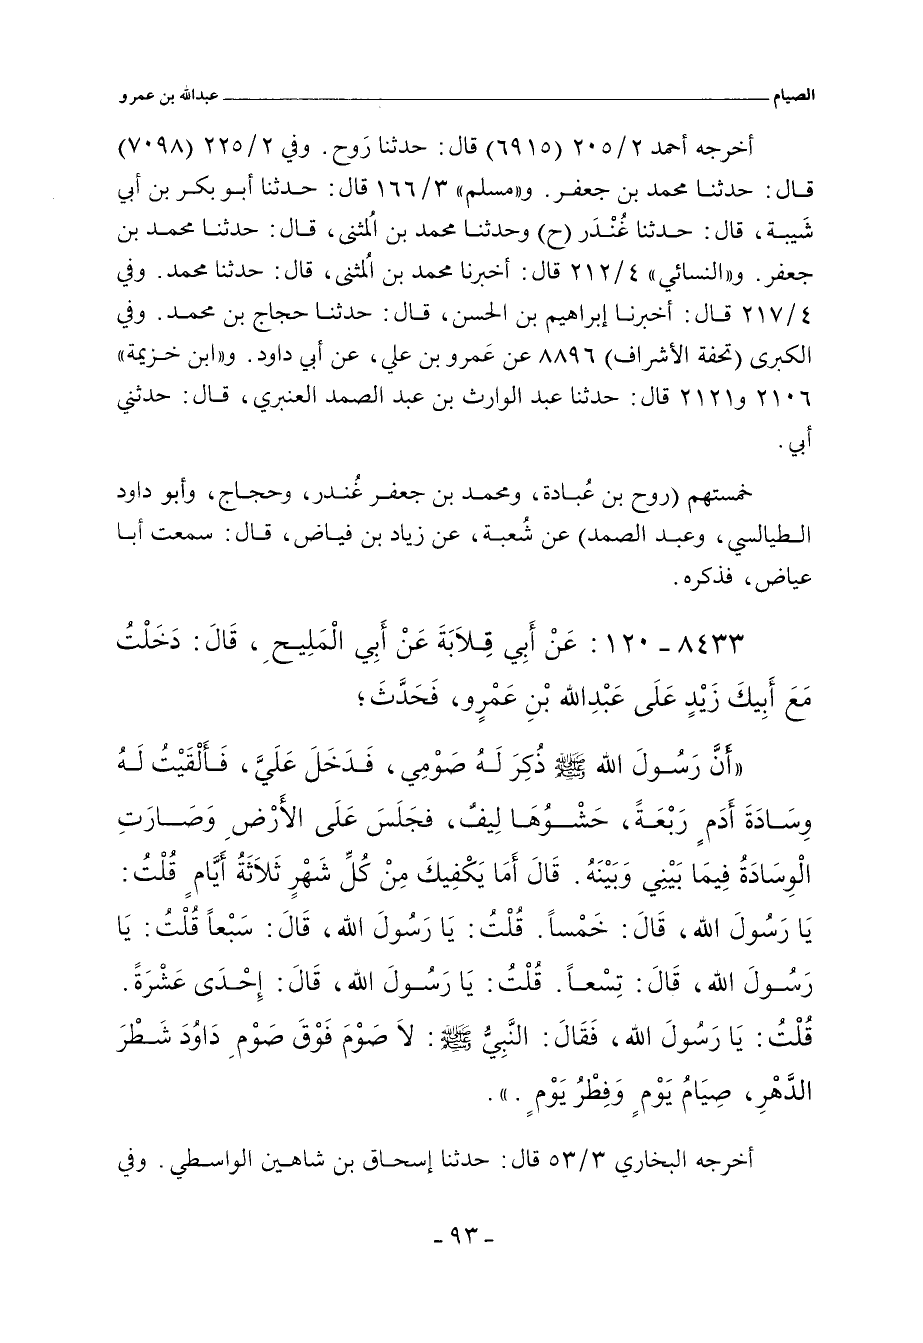 الصيام ــــــــــ عبدالله بن عمرو
أخرجه أحمد ٢/ ٢٠٥ (٦٩١٥) قال: حدثنا رَوح. وفي ٢/ ٢٢٥ (٧٠٩٨)
قال: حدثنا محمد بن جعفر. و«مسلم» ٣/ ١٦٦ قال: حدثنا أبو بكر بن أبي
شَيبة، قال: حدثنا غُنْدَر (ح) وحدثنا محمد بن اُلمثنى، قال: حدثنا محمد بن
جعفر. و«النسائي» ٤/ ٢١٢ قال: أخبرنا محمد بن اُلمثنى، قال: حدثنا محمد. وفي
٤/ ٢١٧ قال: أخبرنا إبراهيم بن الحسن، قال: حدثنا حجاج بن محمد. وفي
الكبرى (تحفة الأشراف) ٨٨٩٦ عن عَمرو بن علي، عن أبي داود. و«ابن خزيمة»
٢١٠٦ و٢١٢١ قال: حدثنا عبد الوارث بن عبد الصمد العنبري، قال: حدثني
أبي.
خمستهم (روح بن عُبادة، ومحمد بن جعفر غُندر، وحجاج، وأبو داود
الطيالسي، وعبد الصمد) عن شُعبة، عن زياد بن فياض، قال: سمعت أبا
عياض، فذكره.
٨٤٣٣ - ١٢٠: عَنْ أَبِي قِلاَبَةَ عَنْ أَبِي الْمَلِيحِ، قَالَ: دَخَلْتُ
مَعَ أَبِيكَ زَيْدٍ عَلَى عَبْدِالله بْنِ عَمْرٍو، فَحَدَّثَ؛
«أَنَّ رَسُولَ الله ﷺ ذُكِرَ لَهُ صَوْمِي، فَدَخَلَ عَلَيَّ، فَأَلْقَيْتُ لَهُ
وِسَادَةَ أَدَمٍ رَبْعَةً، حَشْوُهَا لِيفٌ، فجَلَسَ عَلَى الأَرْضِ وَصَارَتِ
الْوِسَادَةُ فِيمَا بَيْنِي وَبَيْنَهُ. قَالَ أَمَا يَكْفِيكَ مِنْ كُلِّ شَهْرٍ ثَلاَثَةُ أَيَّامٍ قُلْتُ:
يَا رَسُولَ الله، قَالَ: خَمْساً. قُلْتُ: يَا رَسُولَ الله، قَالَ: سَبْعاً قُلْتُ: يَا
رَسُولَ الله، قَالَ: تِسْعاً. قُلْتُ: يَا رَسُولَ الله، قَالَ: إِحْدَى عَشْرَةً.
قُلْتُ: يَا رَسُولَ الله، فَقَالَ: النَّبِيُّ ﷺ: لاَ صَوْمَ فَوْقَ صَوْمِ دَاوُدَ شَطْرَ
الدَّهْرِ، صِيَامُ يَوْمٍ وَفِطْرُ يَوْمٍ.».
أخرجه البخاري ٣/ ٥٣ قال: حدثنا إسحاق بن شاهين الواسطي. وفي
- ٩٣ -